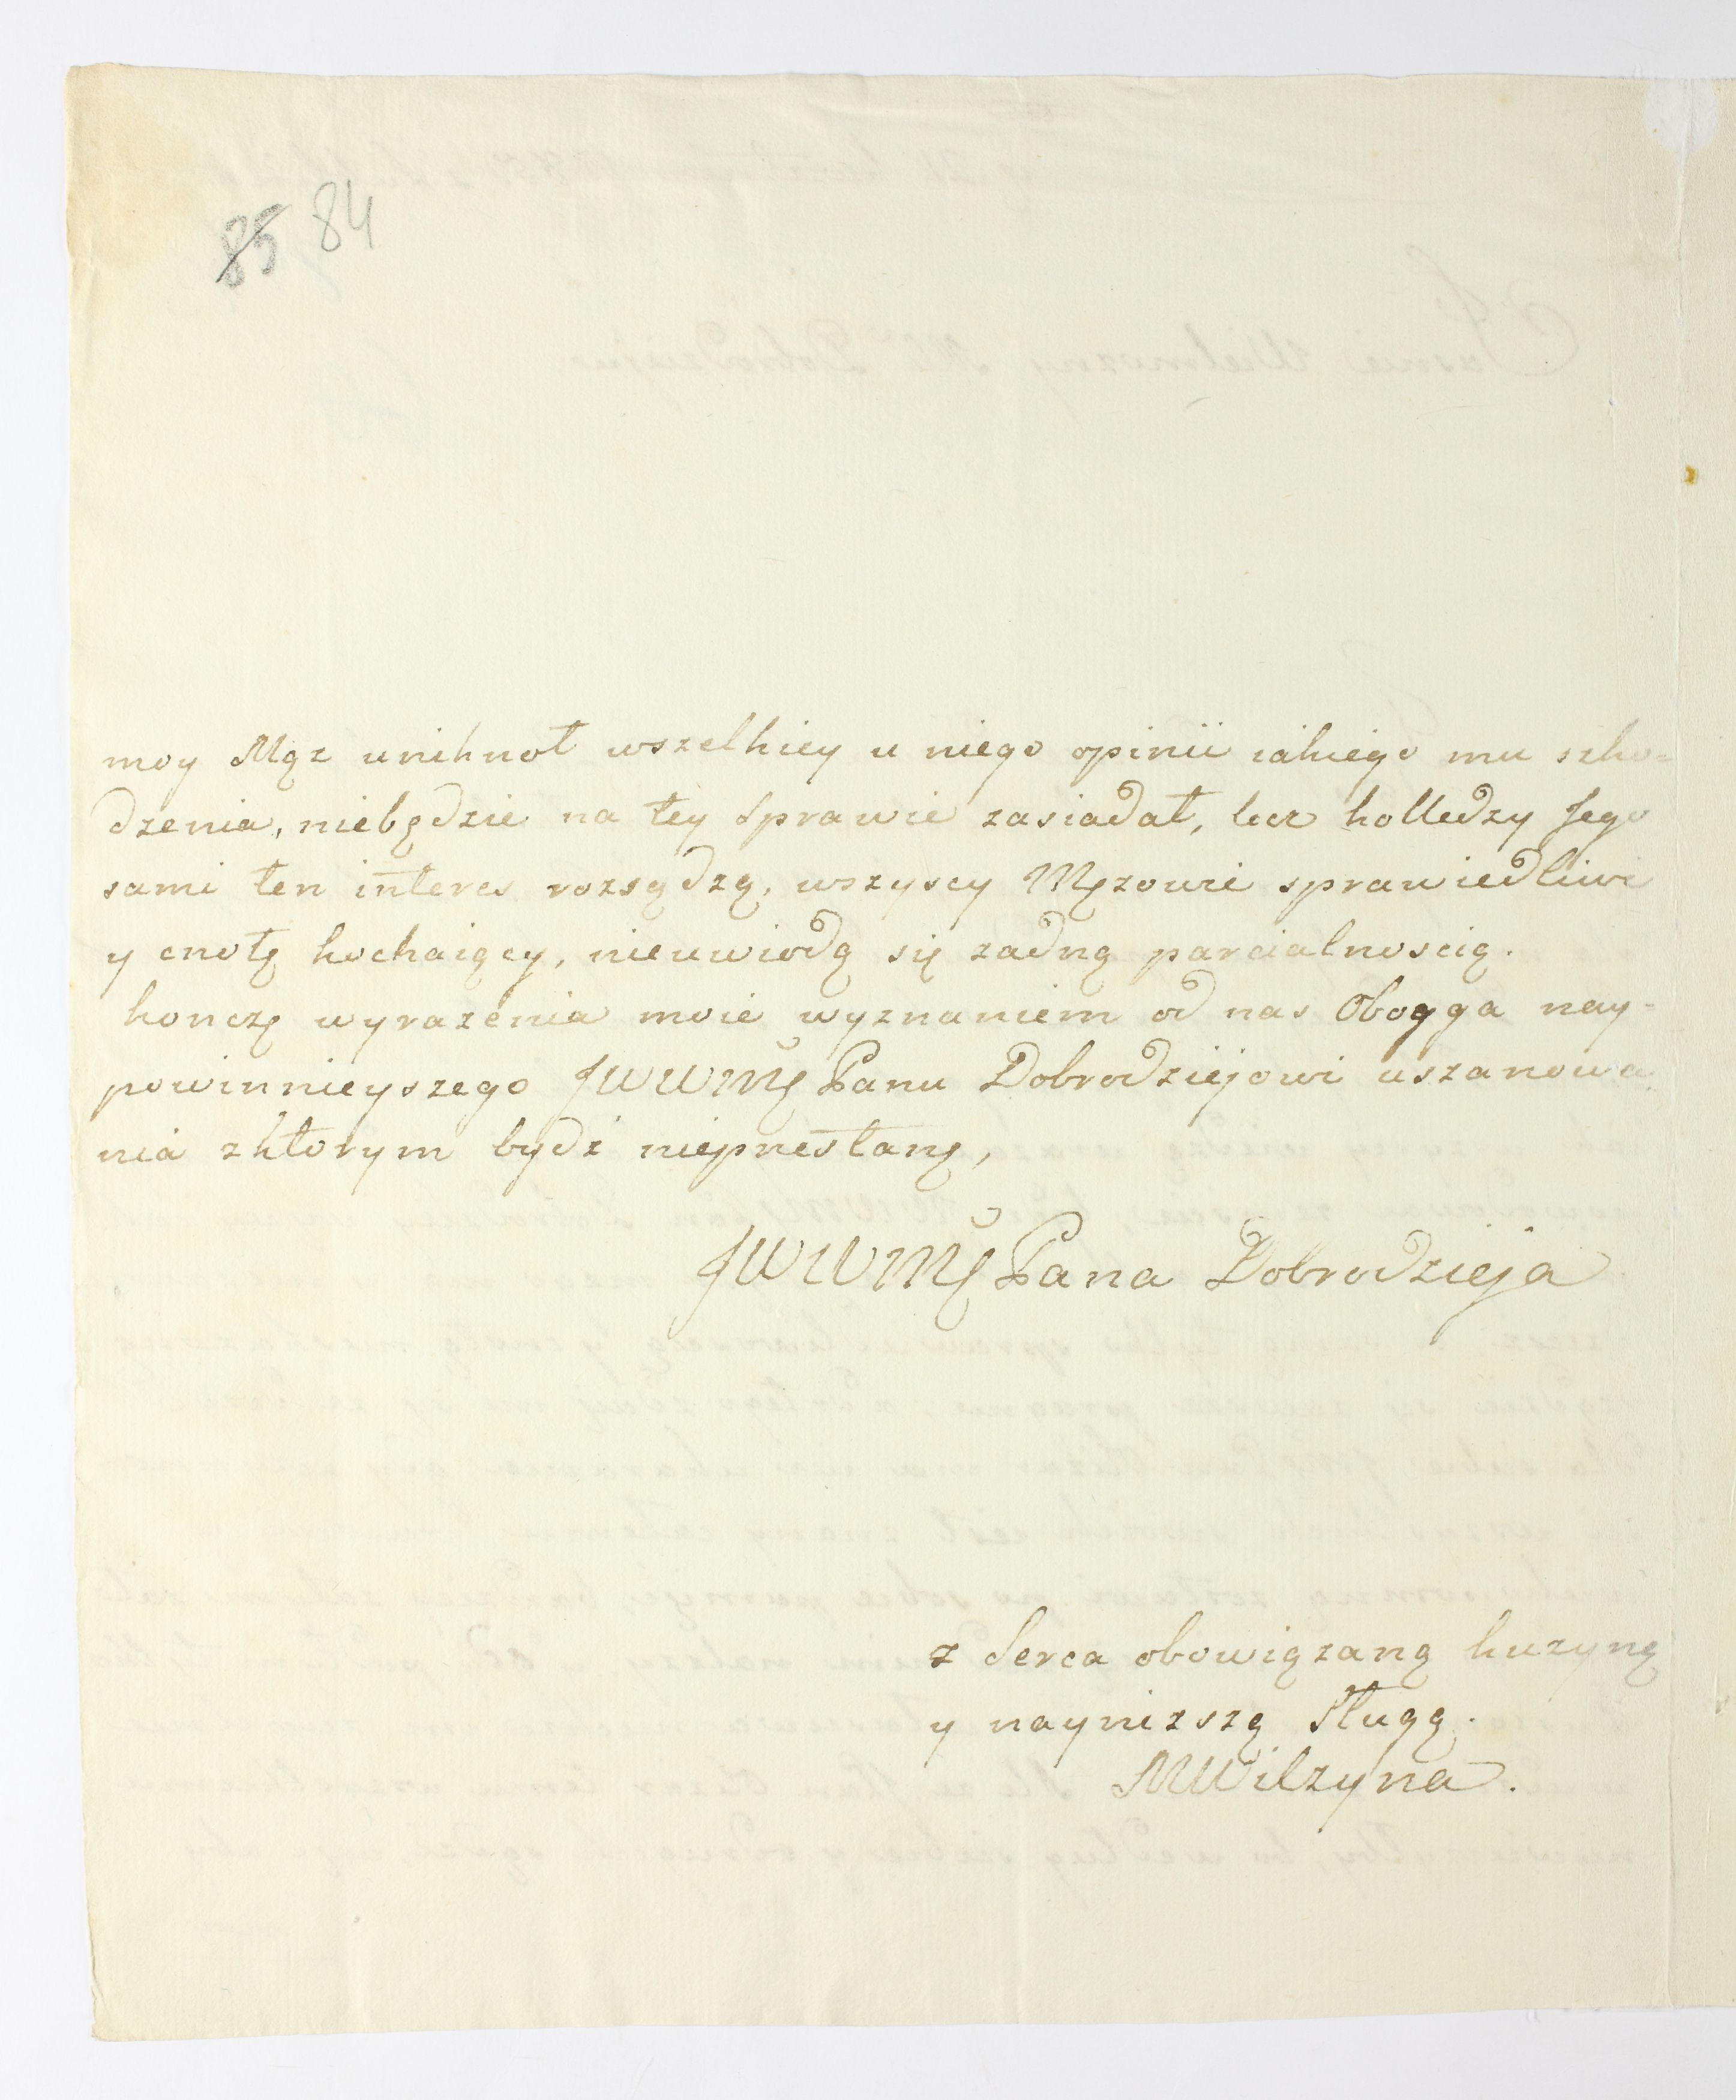 85 84
moy Mąz uniknoł wszelkiey u niego opinii iakiego mu szko=
dzenia, niebędzie na tey Sprawie zasiadał, lecz kolledzy Jego
sami ten interes rozsądzą, wszyscy Mężowie sprawiedliwi
y cnotę kochaiący, nieuwiodą się zadną parcialnoscią.
konczę wyrazenia moie wyznaniem od nas Obogga nay-
powinnieyszego JWWMĘ Panu Dobrodziejowi uszanowa
nia z ktorym bydz nieprzestanę,
JWWMĘ Pana Dobrodzieja
z Serca obowiązaną kuzyną
y naynizszą Sługą.
MWilzyna.